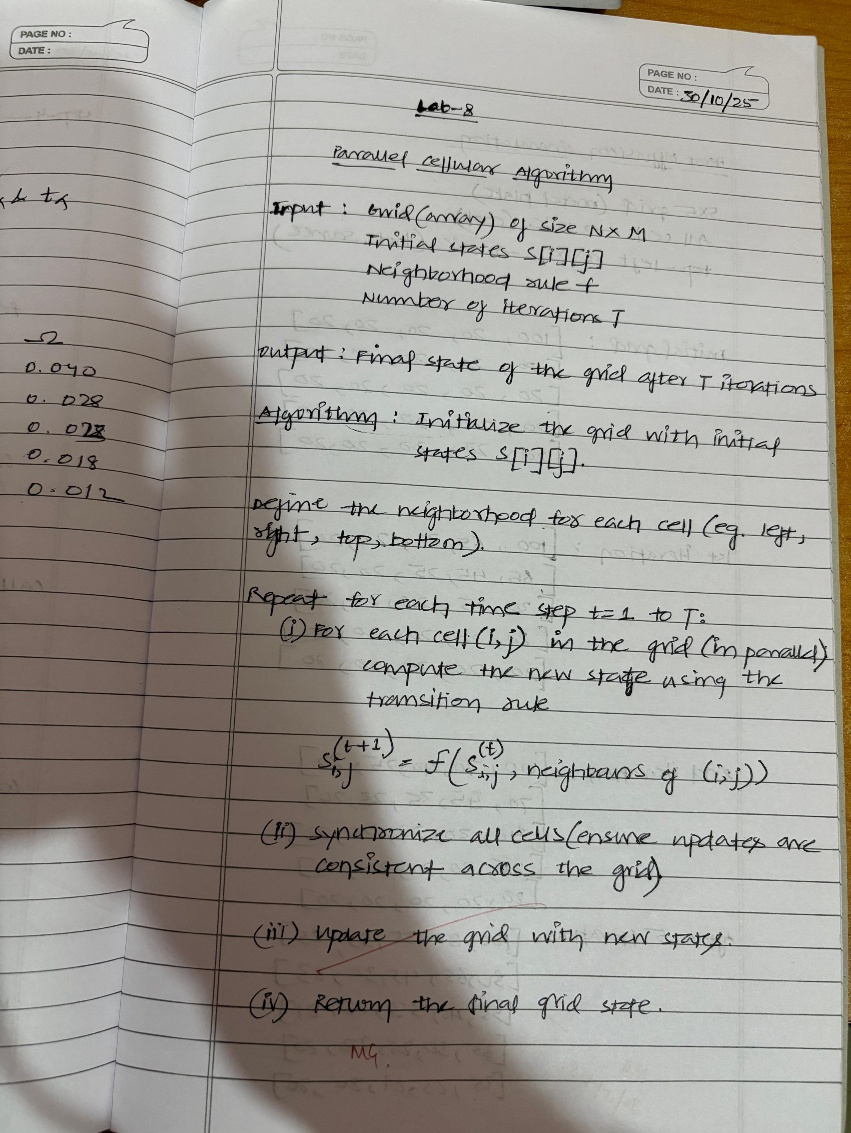 PAGE NO :
DATE :
& tx
Ω
0.040
0.028
0.028
0.018
0.012
PAGE NO :
DATE : 30/10/25
Lab-8
Parallel Cellular Algorithm
Input : Grid (array) of size N×M
Initial states S[i][j]
Neighborhood rule f
Number of iterations T
Output : Final state of the grid after T iterations
Algorithm : Initialize the grid with initial
states S[i][j].
Define the neighborhood for each cell (eg. left,
right, top, bottom).
Repeat for each time step t=1 to T:
(i) For each cell (i,j) in the grid (in parallel)
compute the new state using the
transition rule
S_{i,j}^{(t+1)} = f(S_{i,j}^{(t)}, neighbours of (i,j))
(ii) synchronize all cells (ensure updates are
consistent across the grid)
(iii) Update the grid with new states.
(iv) Return the final grid state.
MG.